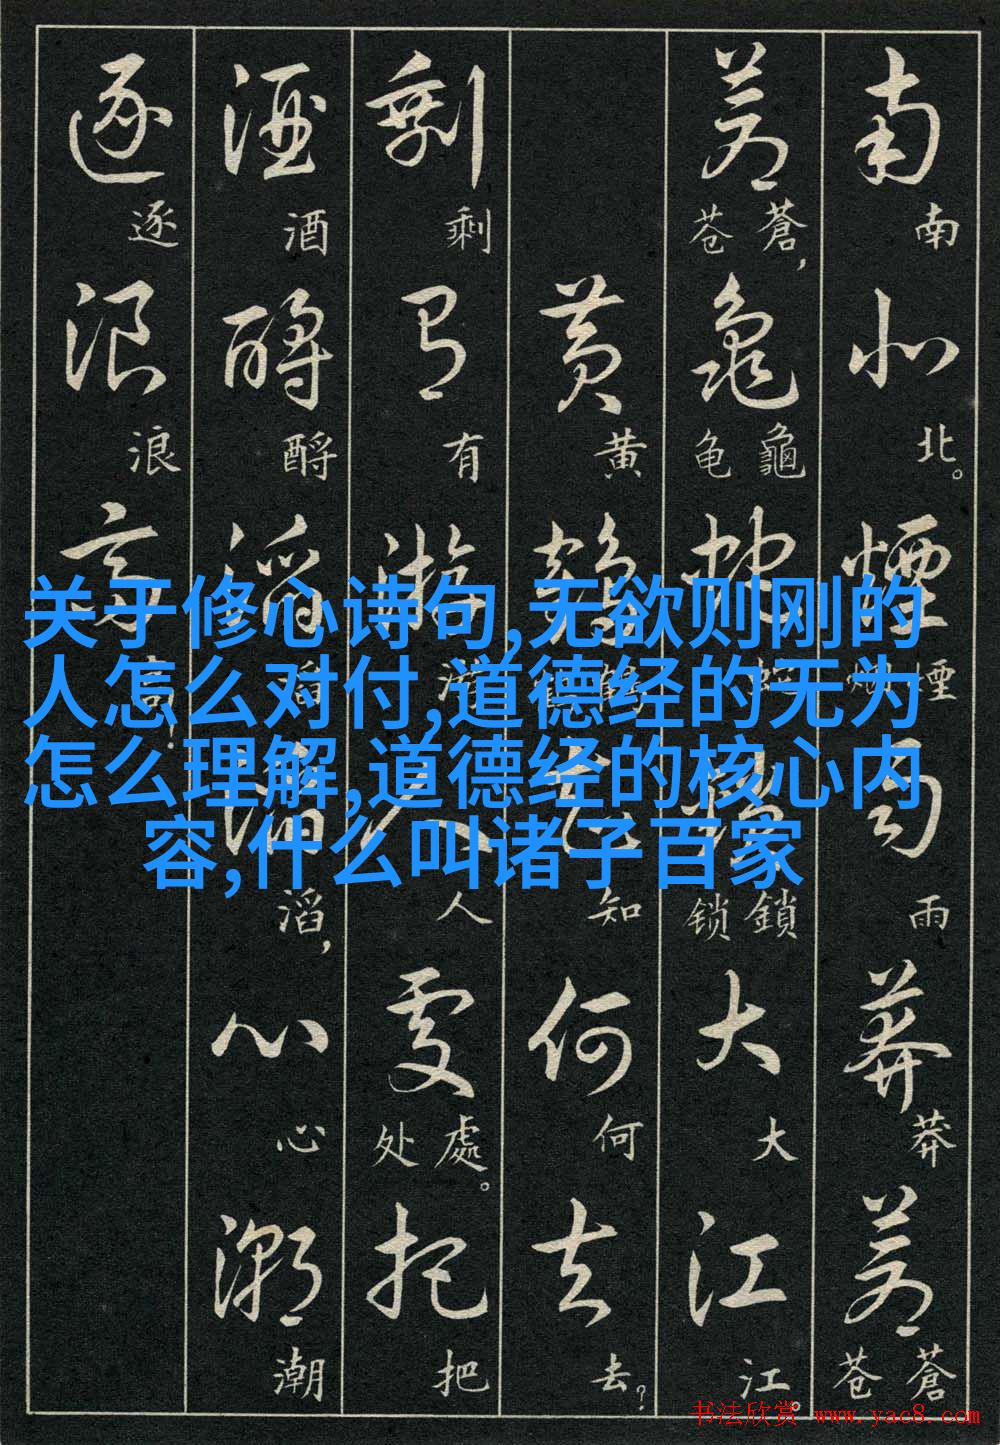 关于修心诗句,无欲则刚的
人怎么对付,道德经的无为
怎么理解,道德经的核心内
容,什么叫诸子百家
南北煙雨莽蒼
南北。煙烟雨莽蒼苍
蒼龜蛇鎖大江
蒼苍,龜龟蛇鎖锁大江。
黄鶴知何去
黄鶴知何去?
剩有游人處把
剩有游人處处。把
酒酹滔滔心潮
酒酹滔滔,心潮
逐浪高
逐浪高!
书法欣赏 www.yac8.com